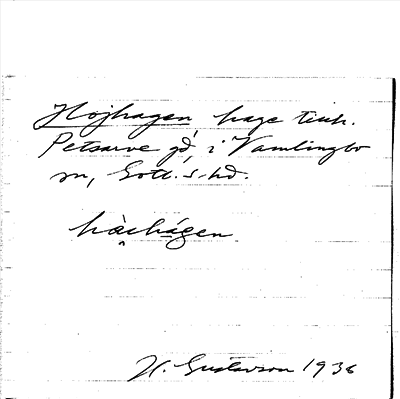 Hojhagen hage tillh.
Petsarve gd, i Vamlingbo
sn, Gotl. s. hd.
hàᴉhágen
H. Gustavson 1936